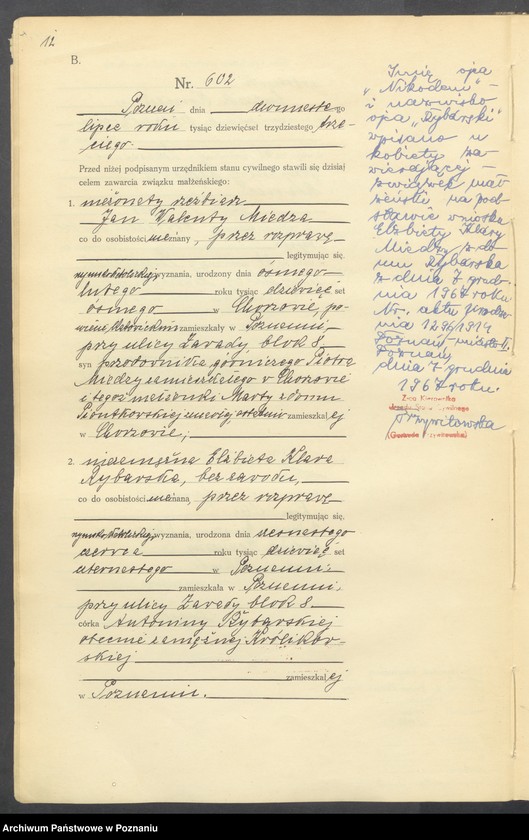 12
B.
Nr. 602
Poznań dnia dwunastego
lipca roku tysiąc dziewięćset trzydziestego trze-
ciego
Przed niżej podpisanym urzędnikiem stanu cywilnego stawili się dzisiaj
celem zawarcia związku małżeńskiego:
1. nieżonaty rzeźbiarz
Jan Walenty Miedza
co do osobistości nieznany, przez rozprawę
legitymując się,
rzymskokatolickiej wyznania, urodzony dnia ósmego
lutego roku tysiąc dziewięć set
ósmego w Chorzowie, po-
wiatu Katowickim zamieszkały w Poznaniu,
przy ulicy Zawady, blok 8.
syn przodownika górniczego Piotra
Miedzy zamieszkałego w Chorzowie
i tegoż małżonki Marty z domu
Piontkowskiej zmarłej, ostatnio zamieszkałej
w Chorzowie,
2. niezamężna Elżbieta Klara
Rybarska, bez zawodu,
co do osobistości nieznana, przez rozprawę
legitymując się,
rzymskokatolickiej wyznania, urodzona dnia szesnastego
czerwca roku tysiąc dziewięć set
czternastego w Poznaniu,
zamieszkała w Poznaniu,
przy ulicy Zawady blok 8.
córka Antoniny Rybarskiej
obecnie zamężnej Królikow-
skiej
zamieszkałej
w Poznaniu.
Imię ojca
„Nikodem” -
i nazwisko
ojca „Rybarski”
wpisano u
kobiety za
wierającej -
związek mał
żeński, na pod
stawie wniosku
Elżbiety Klary
Miedzy z do
mu Rybarska
z dnia 7 grud-
nia 1967 roku
Nr. aktu urodze
nia 1296/1914
Poznań-miasto II,
Poznań,
dnia 7 grudnia
1967 roku.
Z-ca Kierownika
Archiwum Państwowe w Poznaniu